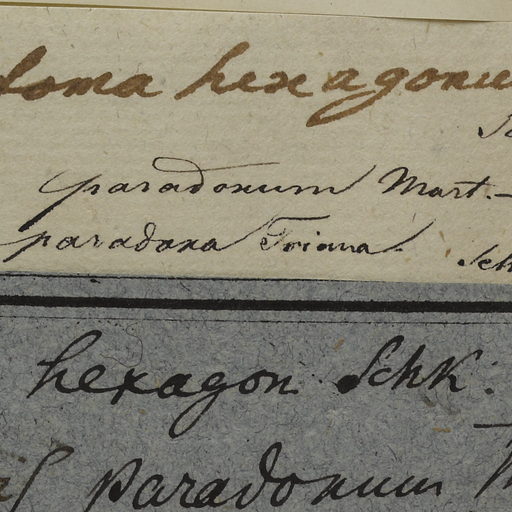 loma hexagonu
paradonum Mart. –
paradona Triana. Sch
hexagon Schk:
paradonum